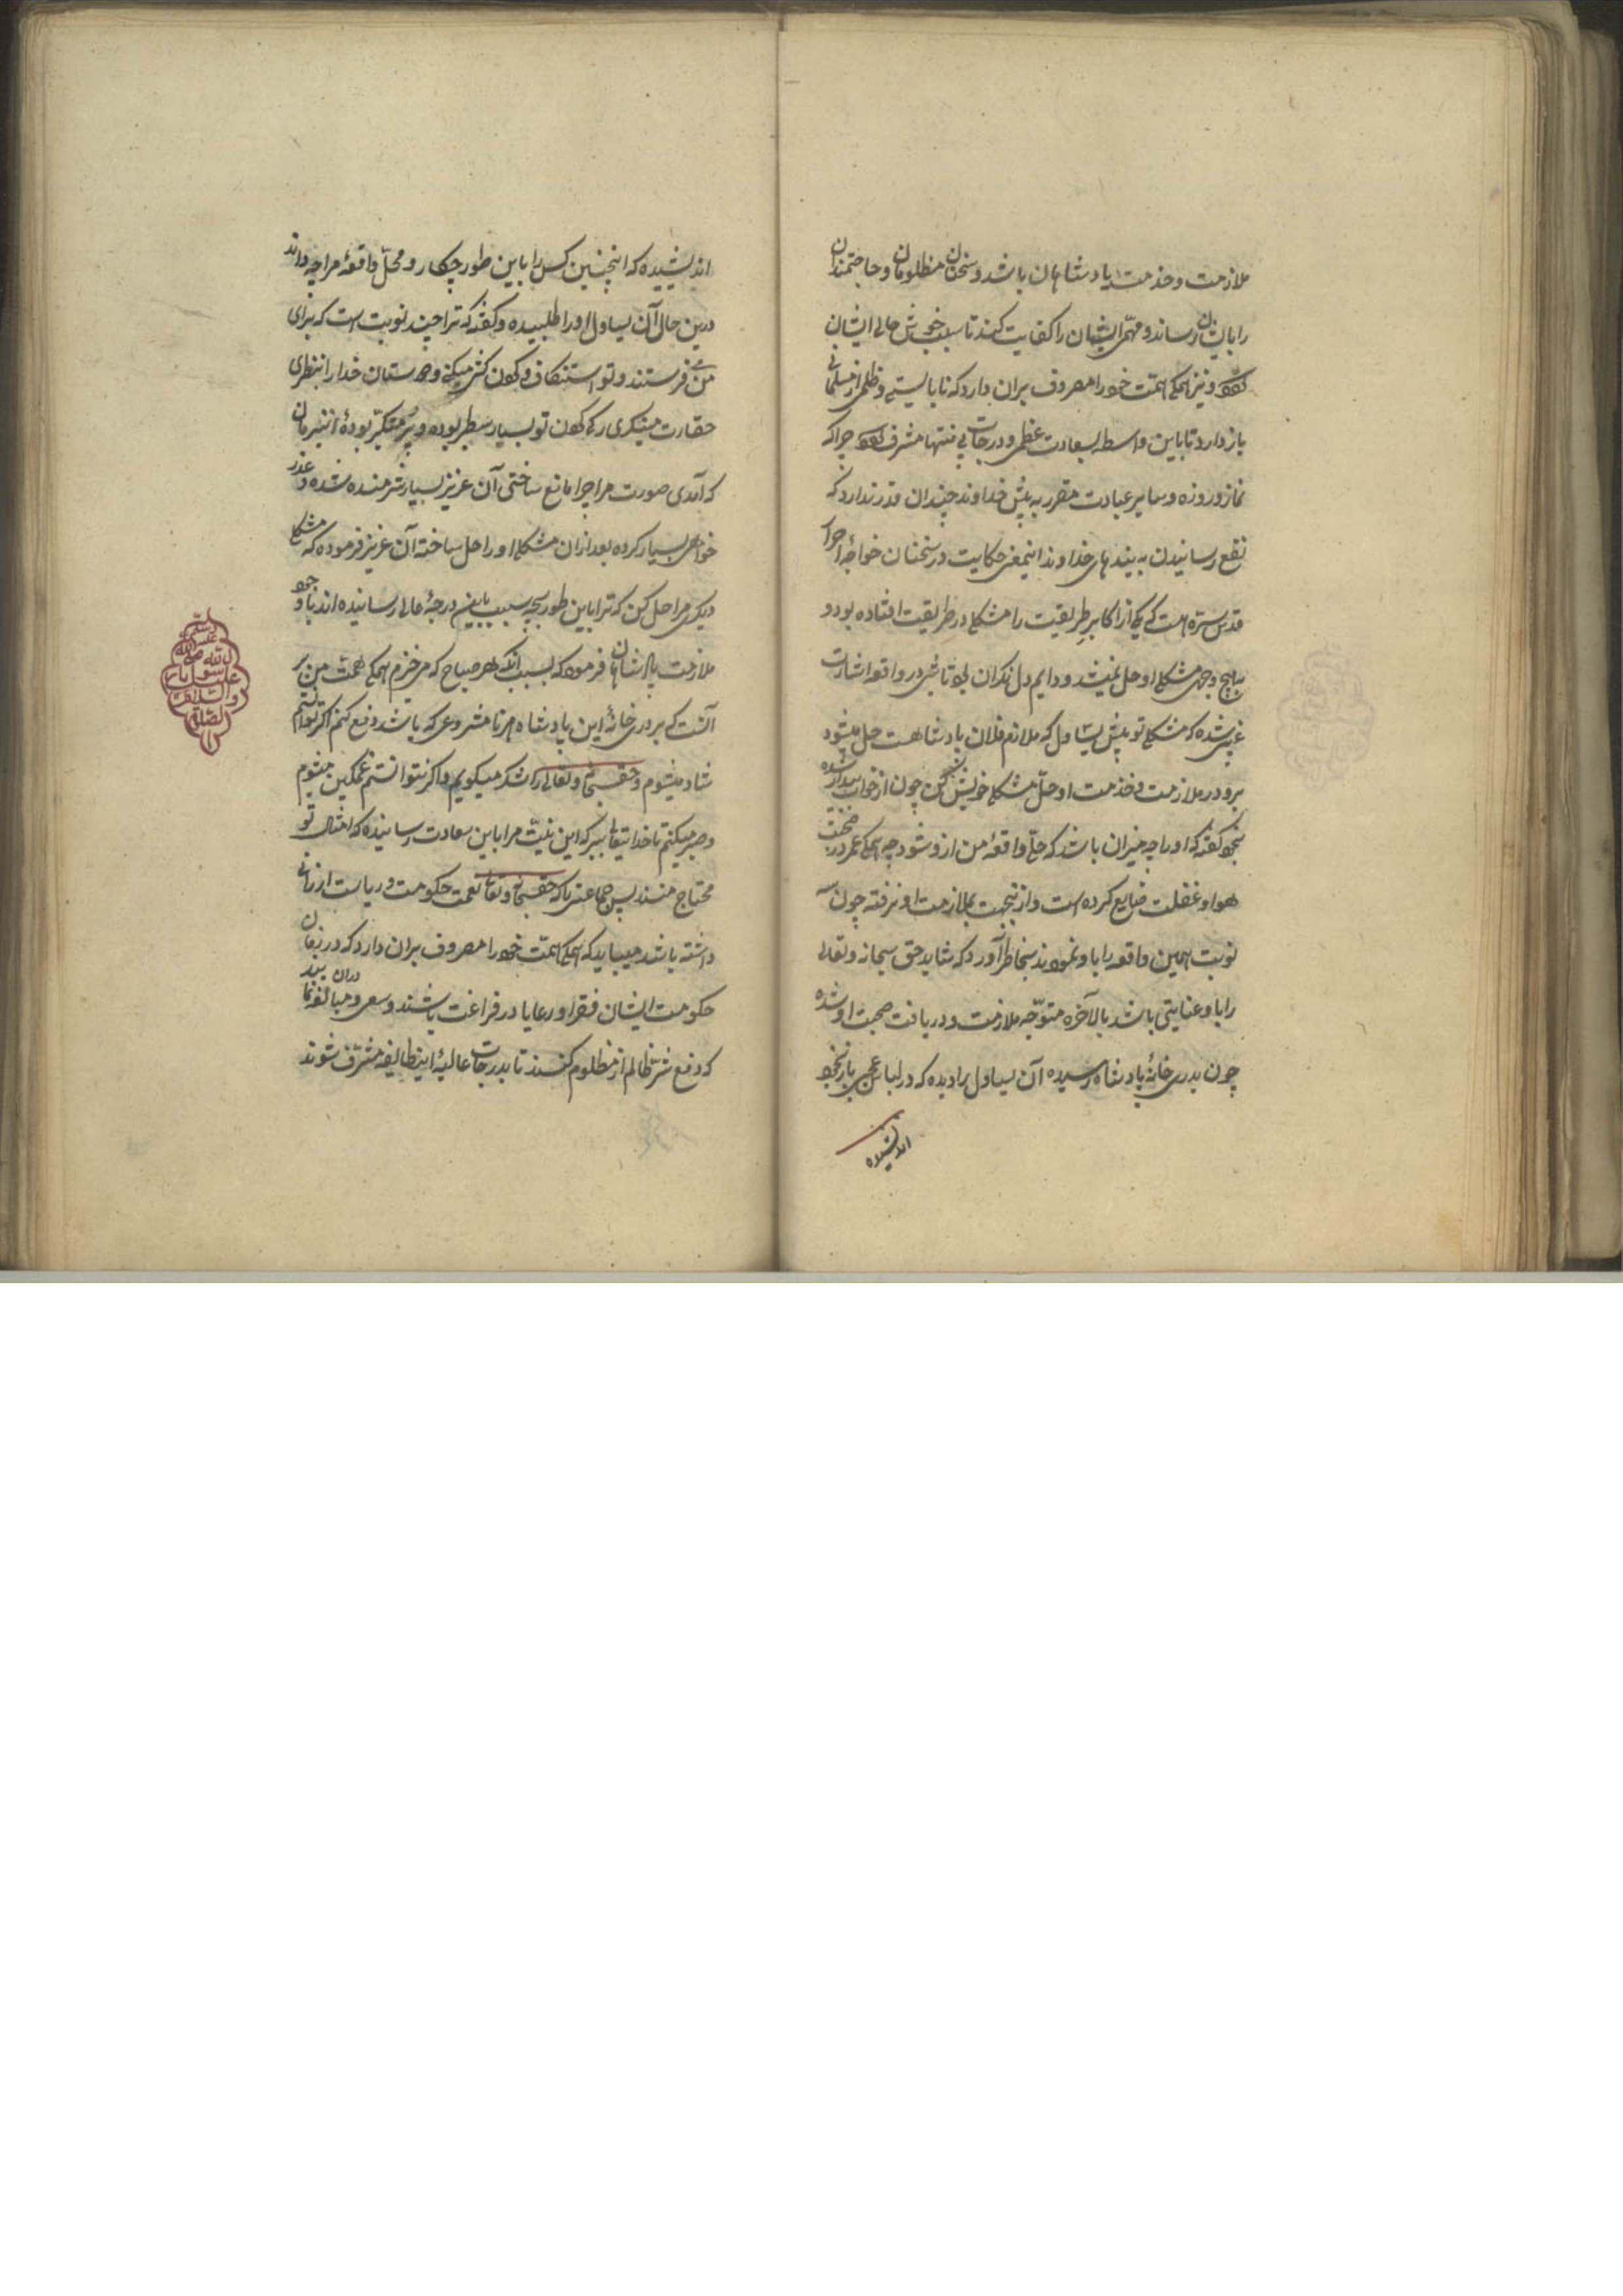 ملازمت و خدمت پادشاهان باشد و سخنان مظلومان و حاجتمندان
را بایشان رساند و مهم ایشان را کفایت کند تا سبب خوش حالی ایشان
شود و نیز همگی همت خود را مصروف بران دارد که نابایستی و ظلمی از مسلمانی
باز دارد تا باین واسطه بسعادت عظمی و درجات بی منتها مشرف شود چرا که
نماز و روزه و سایر عبادت مقرر به پیش خداوند چندان قدر ندارد که
نفع رسانیدن به بندهای خداوند اینمعنی حکایت در سخنان خواجه احرار
قدس سره است که یکی از اکابر طریقت را مشکلی در طریقت افتاده بود و
بهیچ وجهی مشکل او حل نمیشد و دایم دل نگران بود تا شبی در واقعه اشارت
غیبی شده که مشکل تو پیش یساول که ملازم فلان پادشاهست حل میشود
برو در ملازمت و خدمت او حل مشکل خویش کن چون از خواب بیدار شده
بخود گفته که او را چه میزان باشد که حل واقعه من ازو شود چه همگی عمر در صحبت
هوا و غفلت ضایع کرده است و ازینجهت بملازمت او نرفته چون سه
نوبت همین واقعه را باو نمودند بخاطر آورد که شاید حق سبحانه و تعالی
را باو عنایتی باشد بالآخره متوجه ملازمت و دریافت صحبت او شده
چون بدری خانه پادشاه رسیده آن یساول را دیده که در لباس عجبی باز بخود
اندیشیده
اندیشیده که اینچنین کس را باین طور چکار و محل واقعه مرا چه داند
درین حال آن یساول او را طلبیده و گفته که ترا چند نوبت است که برای
من می فرستند و تو استنکاف و گردن کشی میکنی و دوستان خدا را بنظری
حقارت مینگری رگ گردن تو بسیار سطبر بوده و پر متکبر بوده ازینزمان
که آمدی صورت مرا چرا مانع ساختی آن عزیز بسیار شرمنده شده و عذر
خواهی بسیار کرده بعد ازان مشکل او را حل ساخته آن عزیز فرموده که مشکل
دیگری مرا حل کن که ترا باین طور بچه سبب باین درجه عالی رسانیده اند با وجود
ملازمت پادشاهان فرموده که بسبب آنکه هر صباح که می خیزم همگی همت من بر
آنست که بر دری خانه این پادشاه هر نامشروعی که باشد دفع کنم اگر توانستم
شاد میشوم و حق سبحانه و تعالی را شکر میگویم و اگر نتوانستم غمگین میشوم
و صبر میکنم تا خدایتعالی ببرکه این نیت مرا باین سعادت رسانیده که امثال تو
محتاج منند پس جماعتی را که حق سبحانه و تعالی نعمت حکومت و ریاست ارزانی
داشته باشد میباید که همگی همت خود را مصروف بران دارد که در زمان
حکومت ایشان فقرا و رعایا در فراغت باشند و سعی و مبالغه دران نمایند
که دفع شر ظالم از مظلوم کنند تا بدرجات عالیه اینطایفه مشرف شوند
الصلوة
والسلام
علیک یا رسول
الله صلی الله
علیه
وسلم